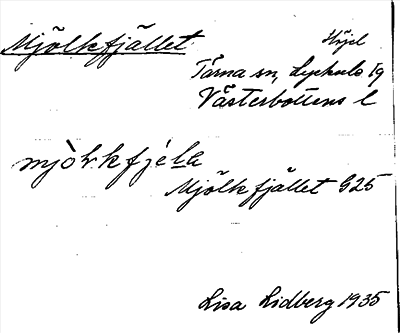 Mjölkfjället
Höjd
Tärna sn, Lycksele lg
Västerbottens l
mjòlkfjęla
Mjölkfjället G25
Lisa Lidberg 1935